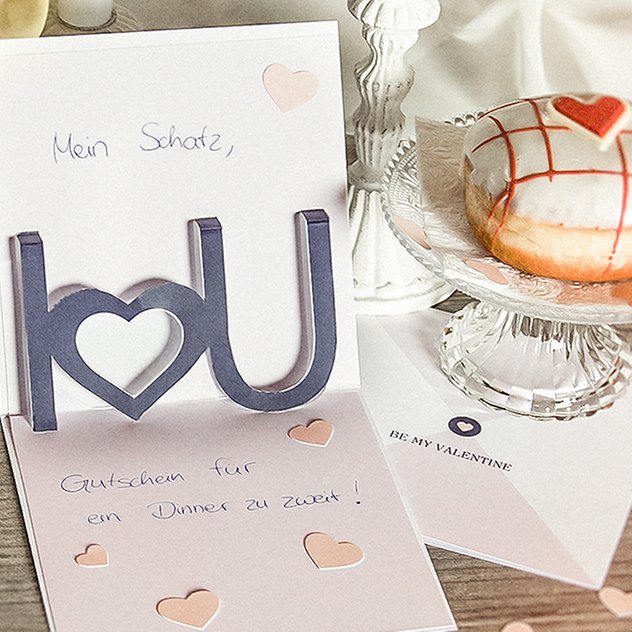 Mein Schatz,
I U
Gutschein für
ein Dinner zu zweit!
BE MY VALENTINE